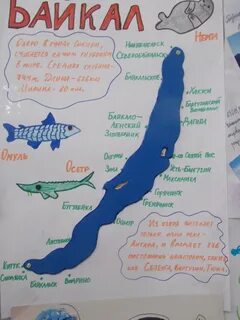 БАЙКАЛ
Нерпа
Озеро в горах Сибири,
считается самым глубоким
в мире. Средняя глубина-
744м. Длина-636км
Ширина-80 км.
Нижнеангарск
Северобайкальск
Байкальское
Хакусы
Давша
Байкало-
Ленский
Заповедник
Омуль
Осетр
Усть-Баргузин
Максимиха
Горячинск
Гремячинск
Бугульдейка
Листвянка
Култук
Слюдянка
Байкальск
Выдрино
Из озера вытекает
только одна река -
Ангара, и впадает
постоянных
Селенга, Баргузин, Турка.